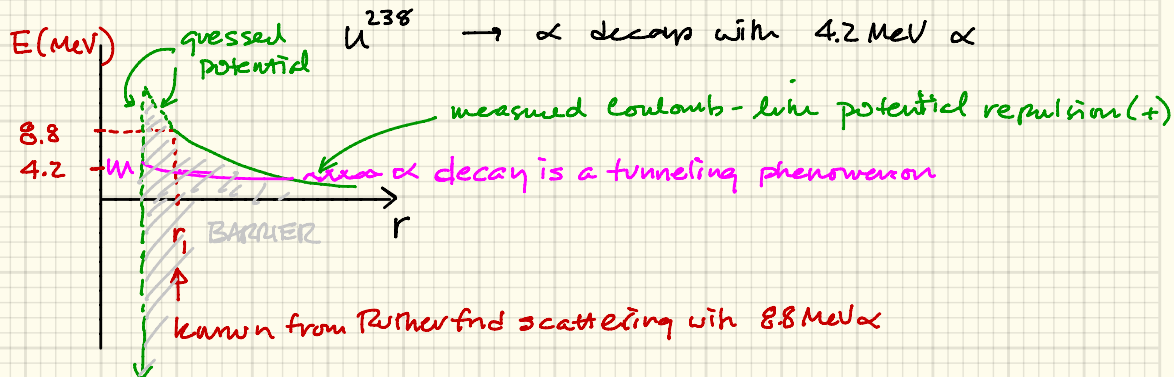 E(MeV)
guessed
potential
U²³⁸ → α decays with 4.2 MeV α
measured Coulomb-like potential repulsion (+)
8.8
4.2
α decay is a tunneling phenomenon
r
BARRIER
r₁
known from Rutherford scattering with 8.8 MeV α